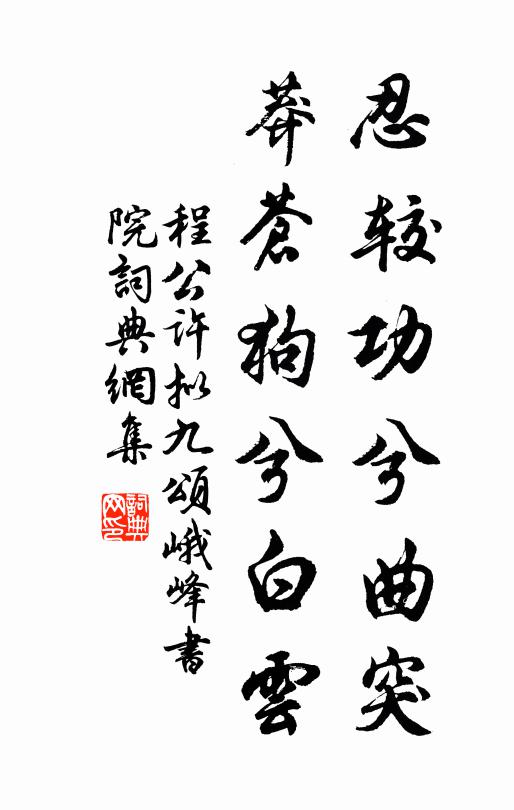 忍较功兮曲突
莽苍狗兮白雲
程公许拟九頌峨峰書
院詞典網集
詞典
网印